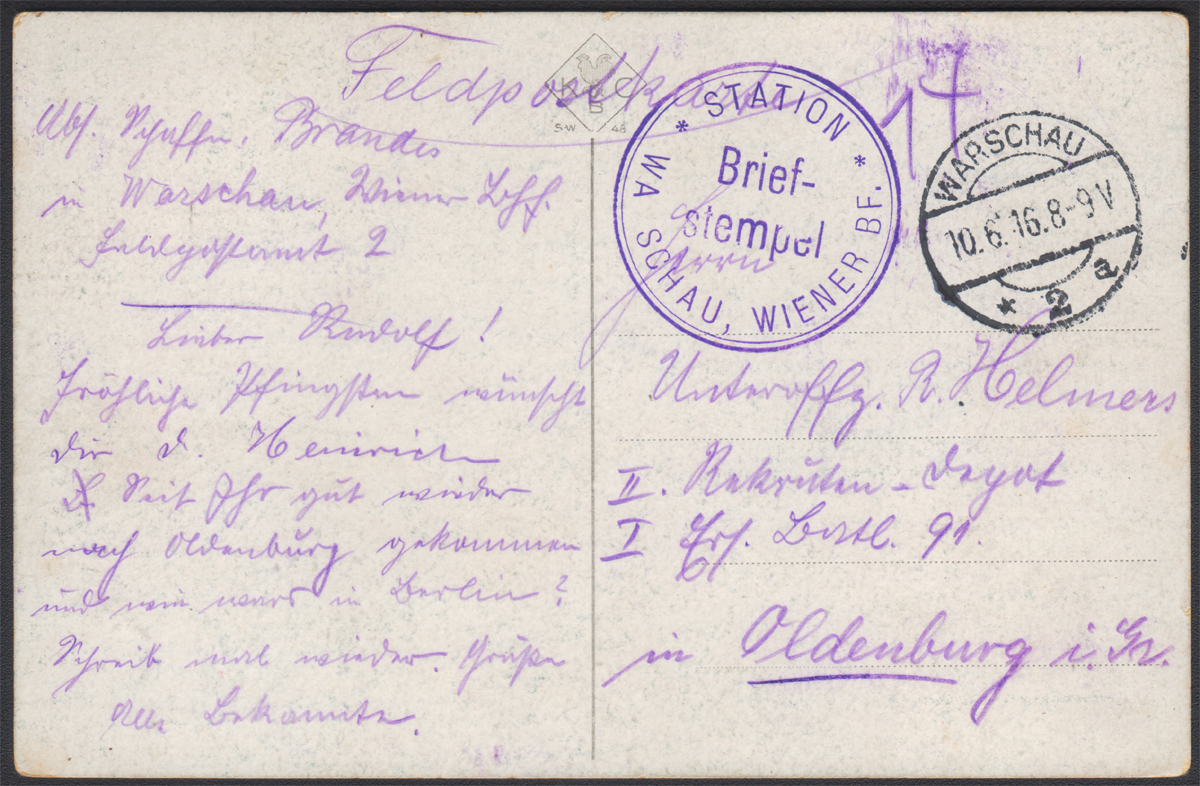 Feldpostkarte
17
K E C
B
S-W 48
Abs. Schaffn. Brandes
in Warschau, Wiener Bhf.
Feldpostamt 2
Lieber Rudolf!
Fröhliche Pfingsten wünscht
dir d. Heinrich
Seit Ihr gut wieder
nach Oldenburg gekommen
und wie wars in Berlin?
Schreib mal wieder. Grüße
Alle Bekannte.
* STATION *
Brief-
stempel
WA SCHAU, WIENER BF.
WARSCHAU
10.6.16.8-9V
* 2 a
Herrn
Unteroffz. R. Helmers
II. Rekruten-Depot
I Ers. Batl. 91.
in Oldenburg i. Gr.